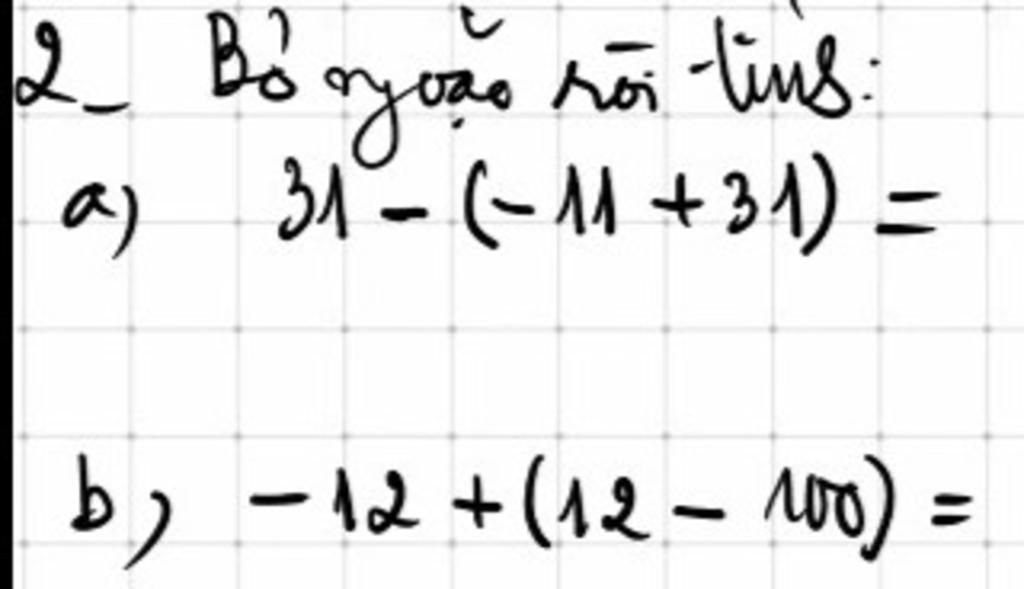 2_ Bỏ ngoặc rồi tính:
a) 31 - (-11 + 31) =
b, -12 + (12 - 100) =